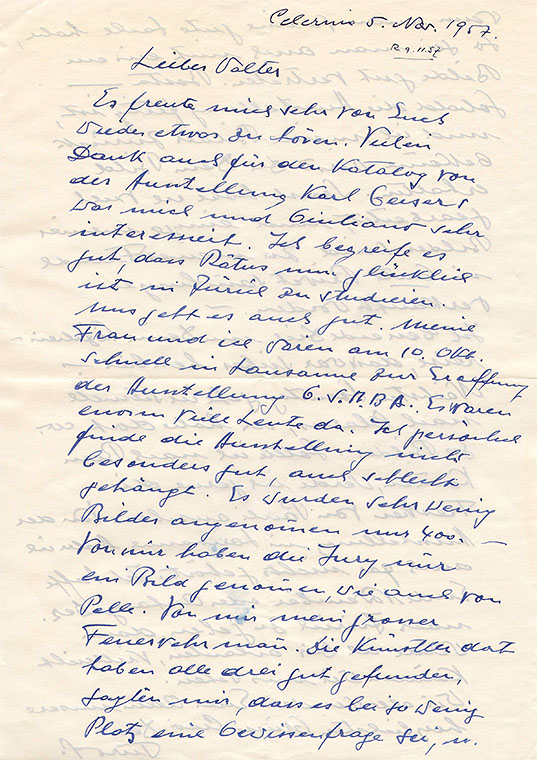 Celerina 5. Nov. 1957.
R 9.11.57
Lieber Valter
Es freute mich sehr von Euch
wieder etwas zu hören. Vielen
Dank auch für den Katalog von
der Ausstellung Karl Geisers
was mich und Giuliano sehr
interessiert. Ich begreife es
gut, dass Rätus nun glücklich
ist in Zürich zu studieren.
Uns geht es auch gut. Meine
Frau und ich waren am 10. Okt.
schnell in Lausanne zur Eröffnung
der Ausstellung G.S.M.B.A. Es waren
enorm viele Leute da. Ich persönlich
finde die Ausstellung nicht
besonders gut, auch schlecht
gehängt. Es wurden sehr wenig
Bilder angenomen nur 400. —
Von mir haben die Jury nur
ein Bild genomen, wie auch von
Pelle. Von mir mein grosser
Feuerwehrman. Die Künstler dort
haben alle drei gut gefunden,
sagten mir, dass es bei so wenig
Platz eine Gewissenfrage sei, u.